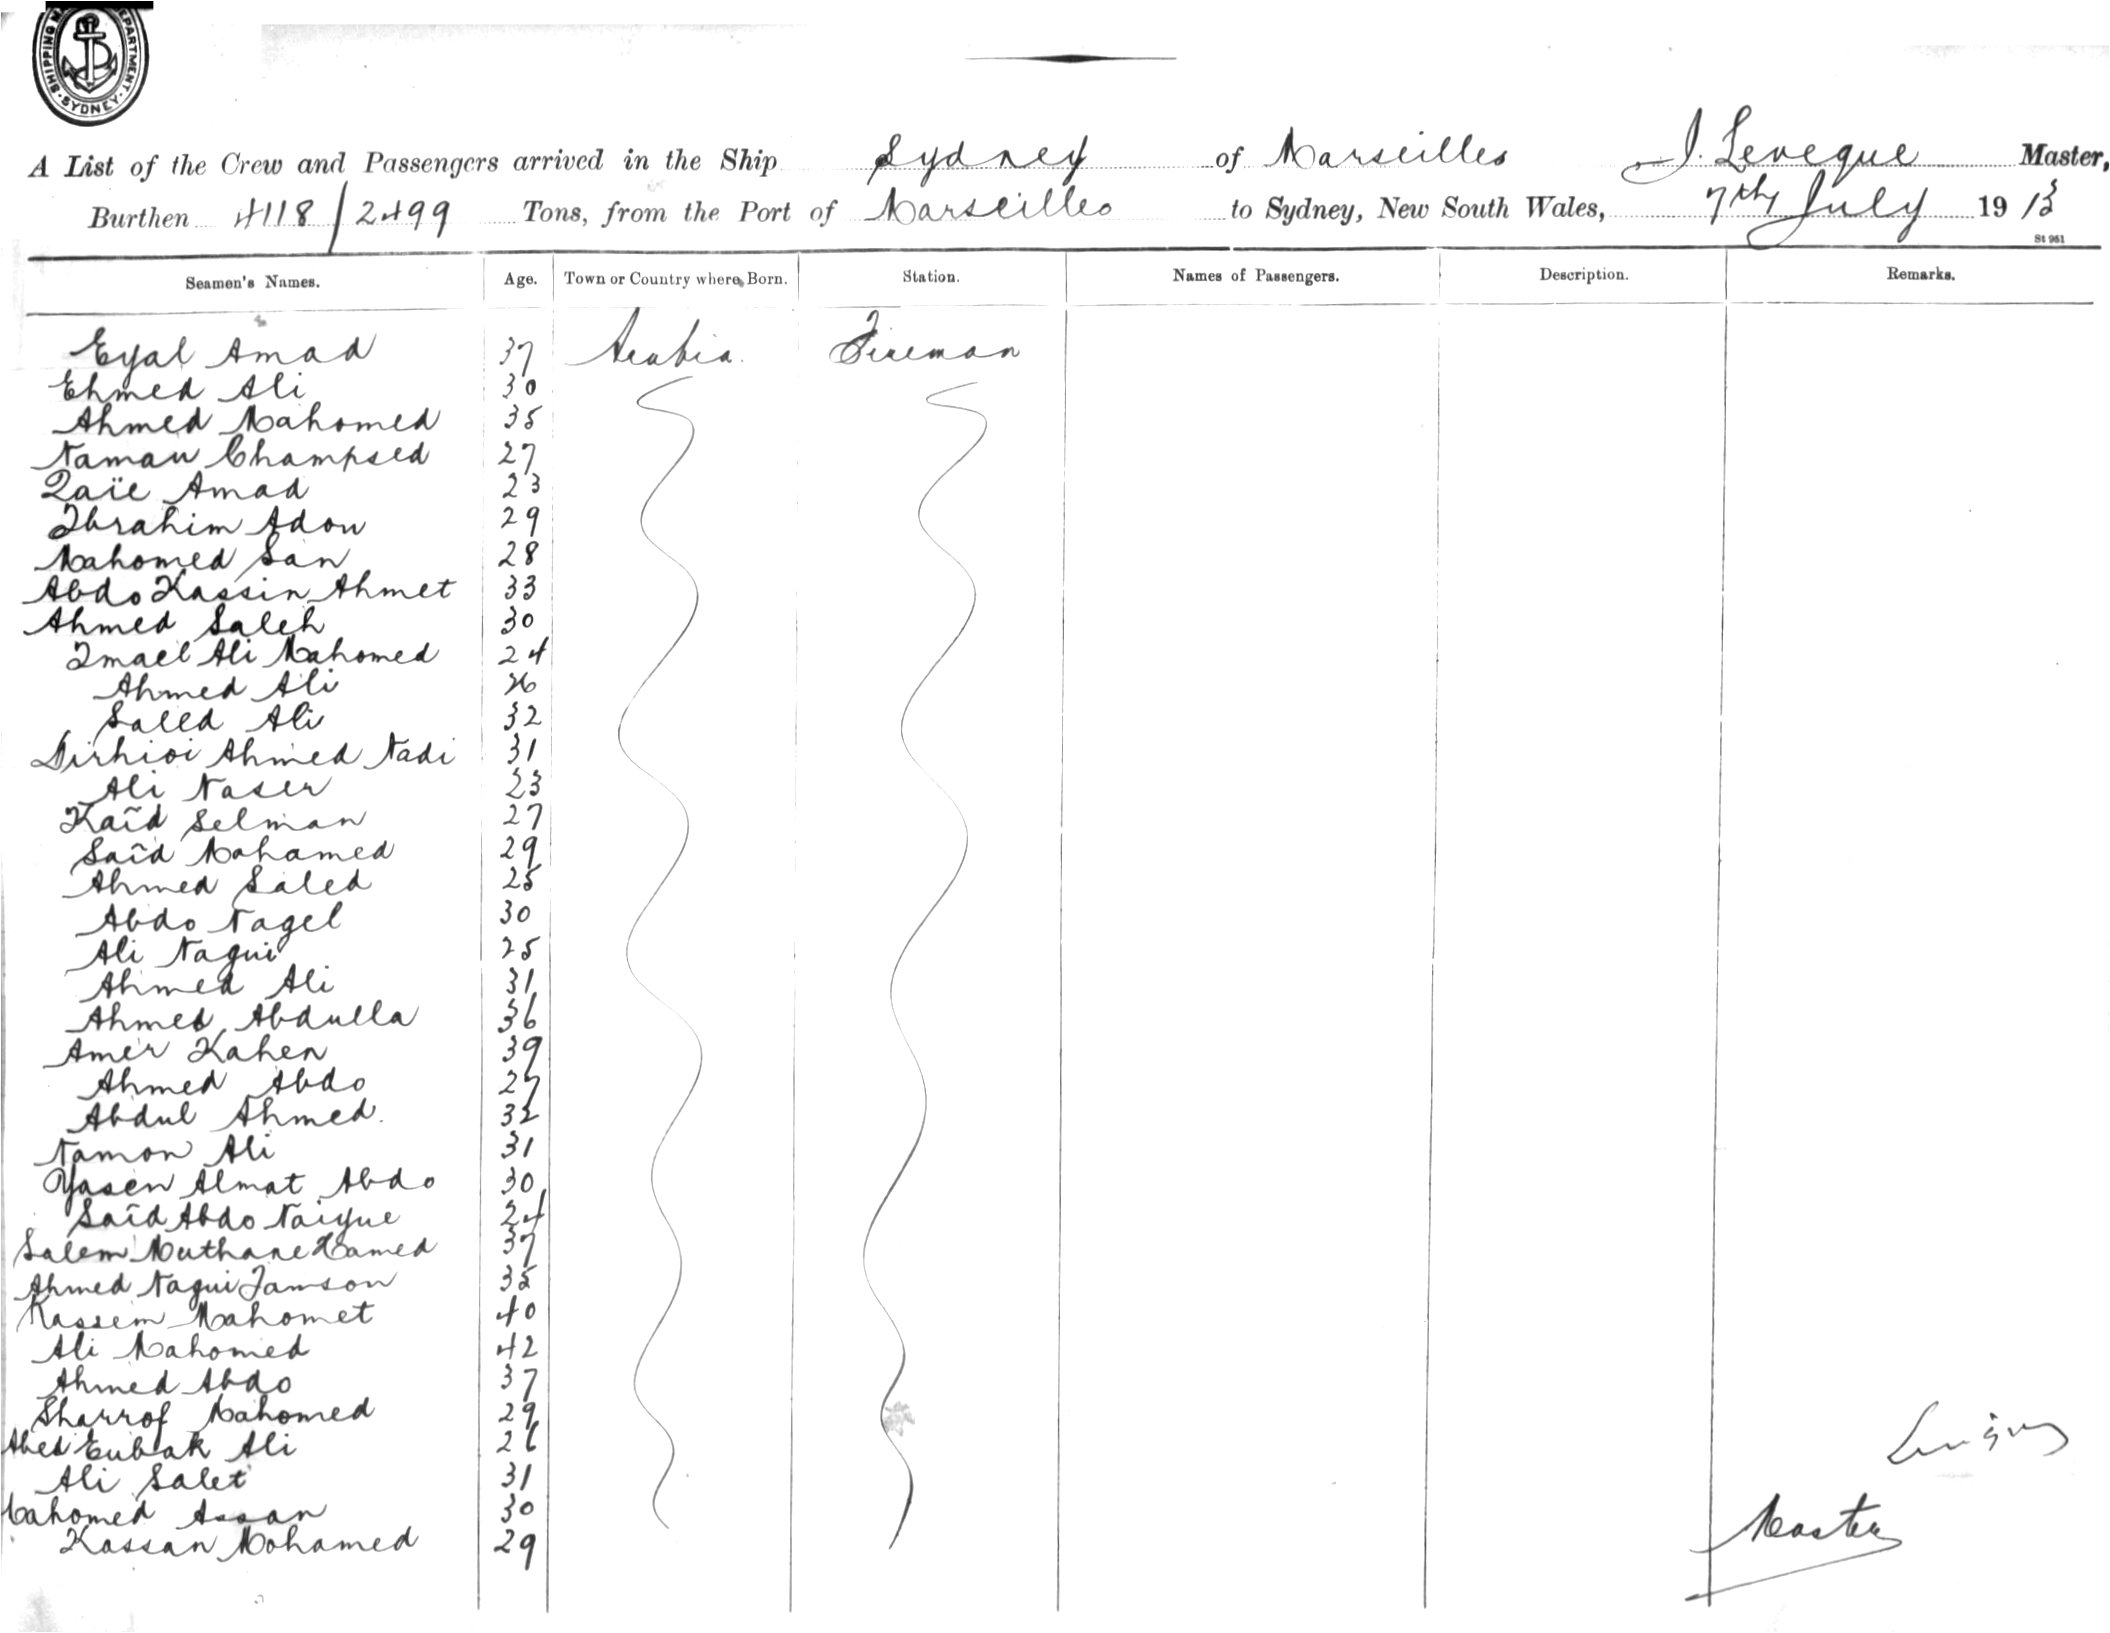 SHIPPING DEPARTMENT SYDNEY
A List of the Crew and Passengers arrived in the Ship Sydney of Marseilles J. Leveque Master,
Burthen 4118/2499 Tons, from the Port of Marseilles to Sydney, New South Wales, 7th July 1913
St 961
Seamen's Names. Age. Town or Country where Born. Station. Names of Passengers. Description. Remarks.
Eyal Amad 37 Arabia. Fireman
Ehmed Ali 30
Ahmed Mahomed 35
Naman Champsed 27
Zaïe Amad 23
Ibrahim Adou 29
Mahomed San 28
Abdo Kassin Ahmet 33
Ahmed Saleh 30
Imael Ali Mahomed 24
Ahmed Ali 26
Saled Ali 32
Dirhioi Ahmed Nadi 31
Ali Naser 23
Kaïd Selman 27
Saïd Mohamed 29
Ahmed Saled 25
Abdo Nagel 30
Ali Nagui 25
Ahmed Ali 31
Ahmed Abdulla 36
Amer Kahen 39
Ahmed Abdo 27
Abdul Ahmed. 32
Namon Ali 31
Yasen Almat Abdo 30
Saïd Abdo Naigue 24
Salem Muthane Hamed 37
Ahmed Nagui Jamson 35
Kassem Mahomet 40
Ali Mahomed 42
Ahmed Abdo 37
Sharrof Mahomed 29
Abed Eubak Ali 26
Ali Salet 31
Mahomed Assan 30
Kassan Mohamed 29
Master